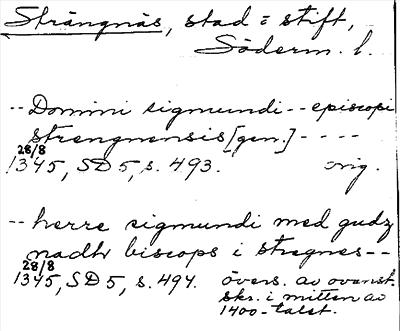 Strängnäs, stad o stift,
Söderm. l.
-- Domini sigmundi -- episcopi
strengnensis [gen.] ----
28/8
1345, SD 5, s. 493. orig.
-- herre sigmundi med gudz
nadhr biscops i stregnes --
28/8
1345, SD 5, s. 494. övers. av ovanst.
skr. i mitten av
1400-talet.